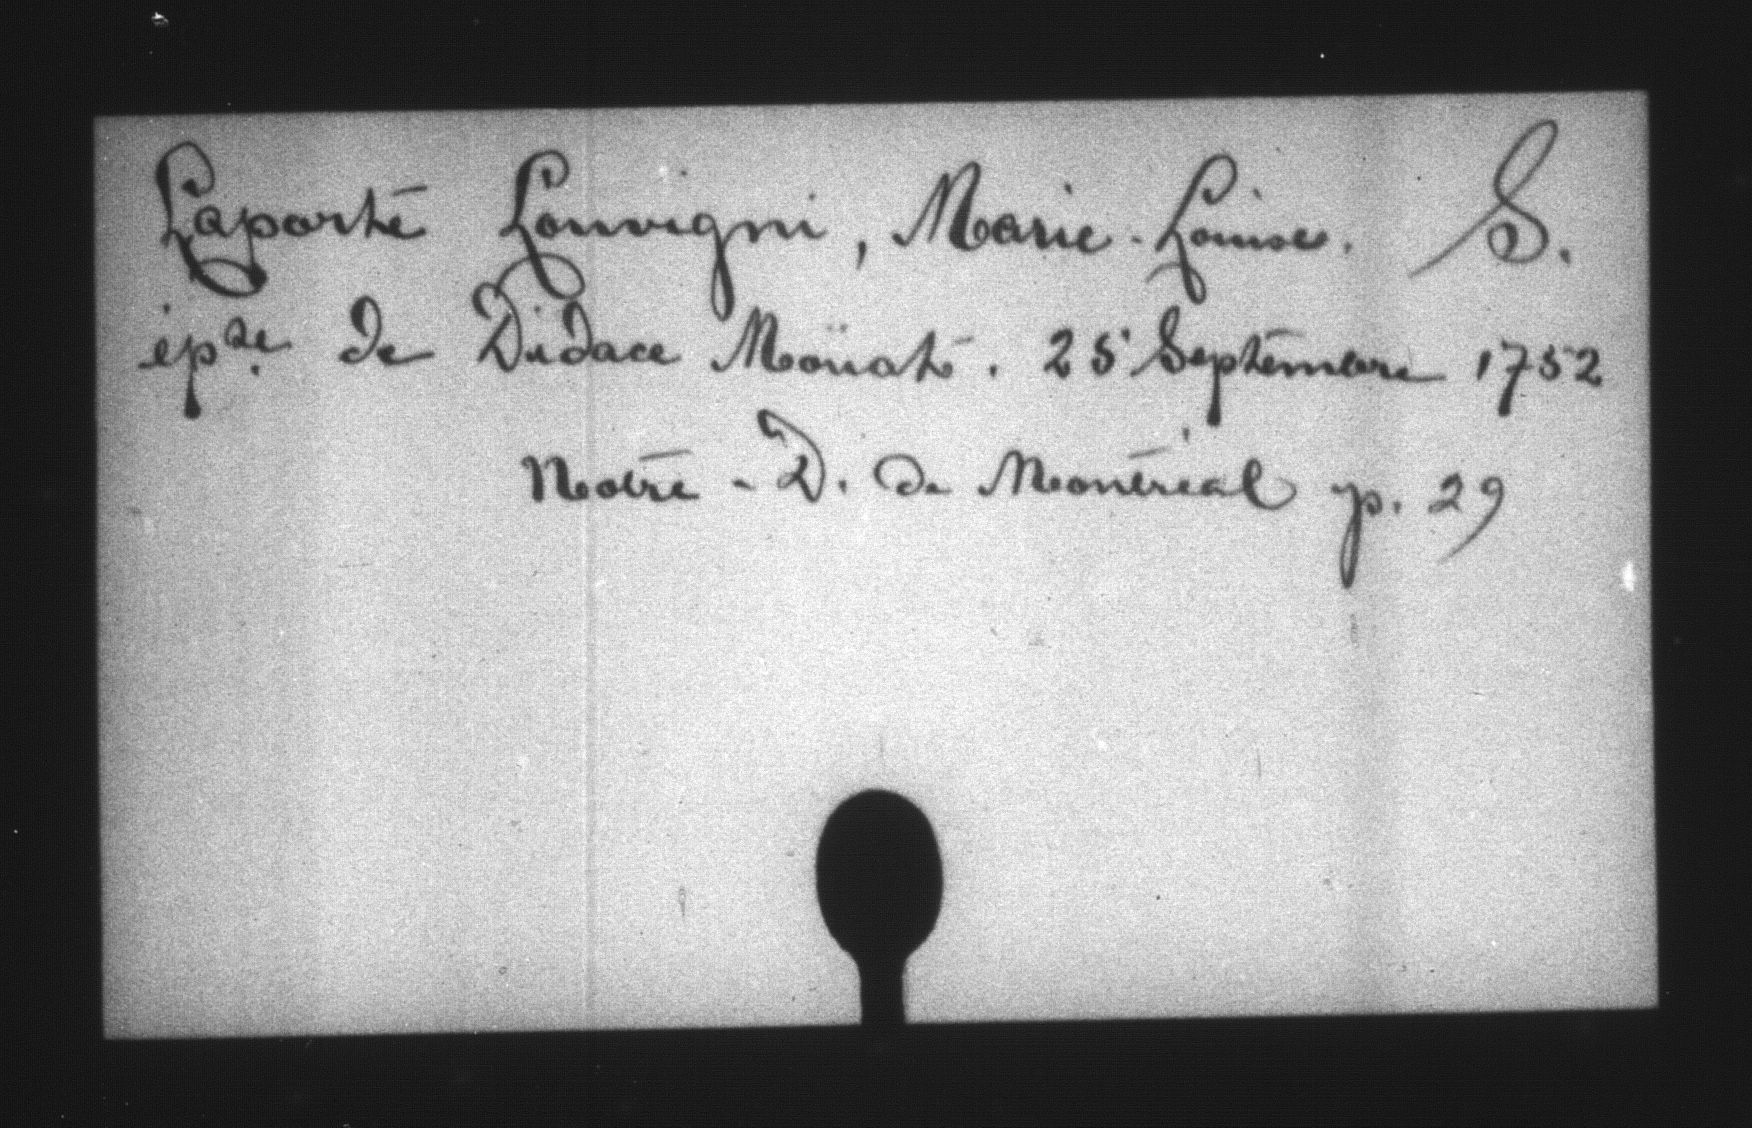 Laporte Louvigni, Marie-Louise. S.
épse. de Didace Moüate. 25 Septembre 1752
Notre-D. de Montréal p. 29